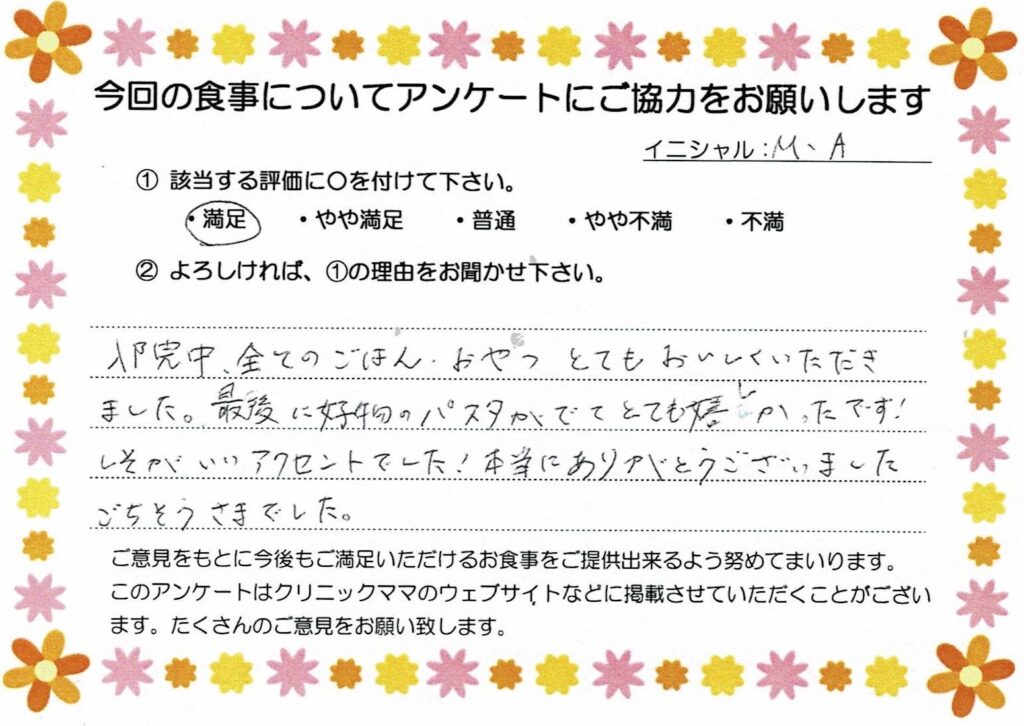 今回の食事についてアンケートにご協力をお願いします
イニシャル:M、A
① 該当する評価に〇を付けて下さい。
・満足 ・やや満足 ・普通 ・やや不満 ・不満
② よろしければ、①の理由をお聞かせ下さい。
入院中、全てのごはん・おやつ とてもおいしくいただき
ました。最後に好物のパスタがでてとても嬉しかったです!
しそがいいアクセントでした!本当にありがとうございました
ごちそうさまでした。
ご意見をもとに今後もご満足いただけるお食事をご提供出来るよう努めてまいります。
このアンケートはクリニックママのウェブサイトなどに掲載させていただくことがござい
ます。たくさんのご意見をお願い致します。